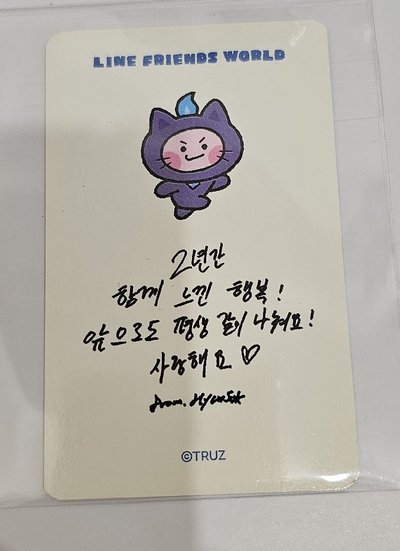 LINE FRIENDS WORLD
2년간
함께 느낀 행복!
앞으로도 평생 같이 나눠요!
사랑해요 ♡
from. Hyunsuk
©TRUZ